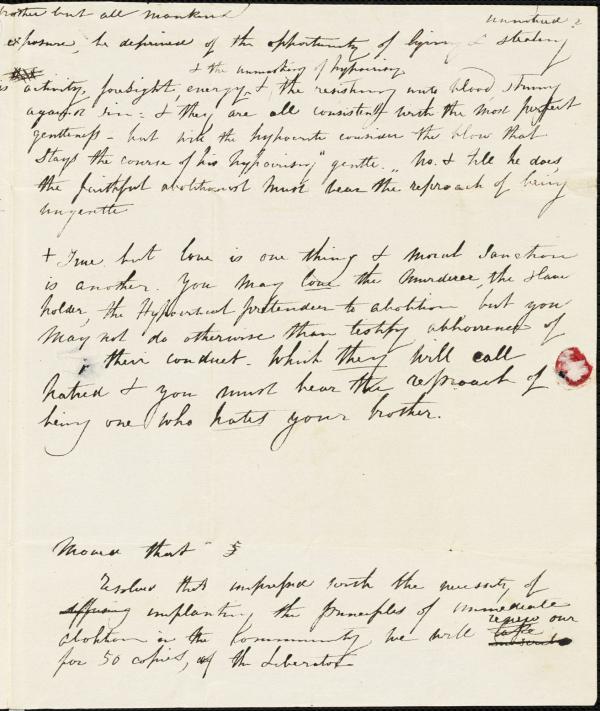 brother but all mankind
unnoticed ?
exposure, be deprived of the opportunity of lying & stealing
& the unmasking of hypocrisy
is activity, foresight, energy, & the resisting unto blood striving
against sin: & they are all consistent with the most perfect
gentleness - but will the hypocrite consider the blow that
stays the course of his hypocrisy "gentle." No. & till he does
the faithful abolitionist must bear the reproach of being
ungentle
+ True but love is one thing & moral sanction
is another. You may love the murderer, the slave
holder, the Hypocritical pretender to abolition but you
may not do otherwise than testify abhorrence of
their conduct. Which they will call
hatred & you must bear the reproach of
being one who hates your brother.
Moved that "5
Resolved that impressed with the necessity of
diffusing implanting the principles of immediate
renew our
abolition in the Kommunity we will take
subscribe
for 50 copies, of the Liberator